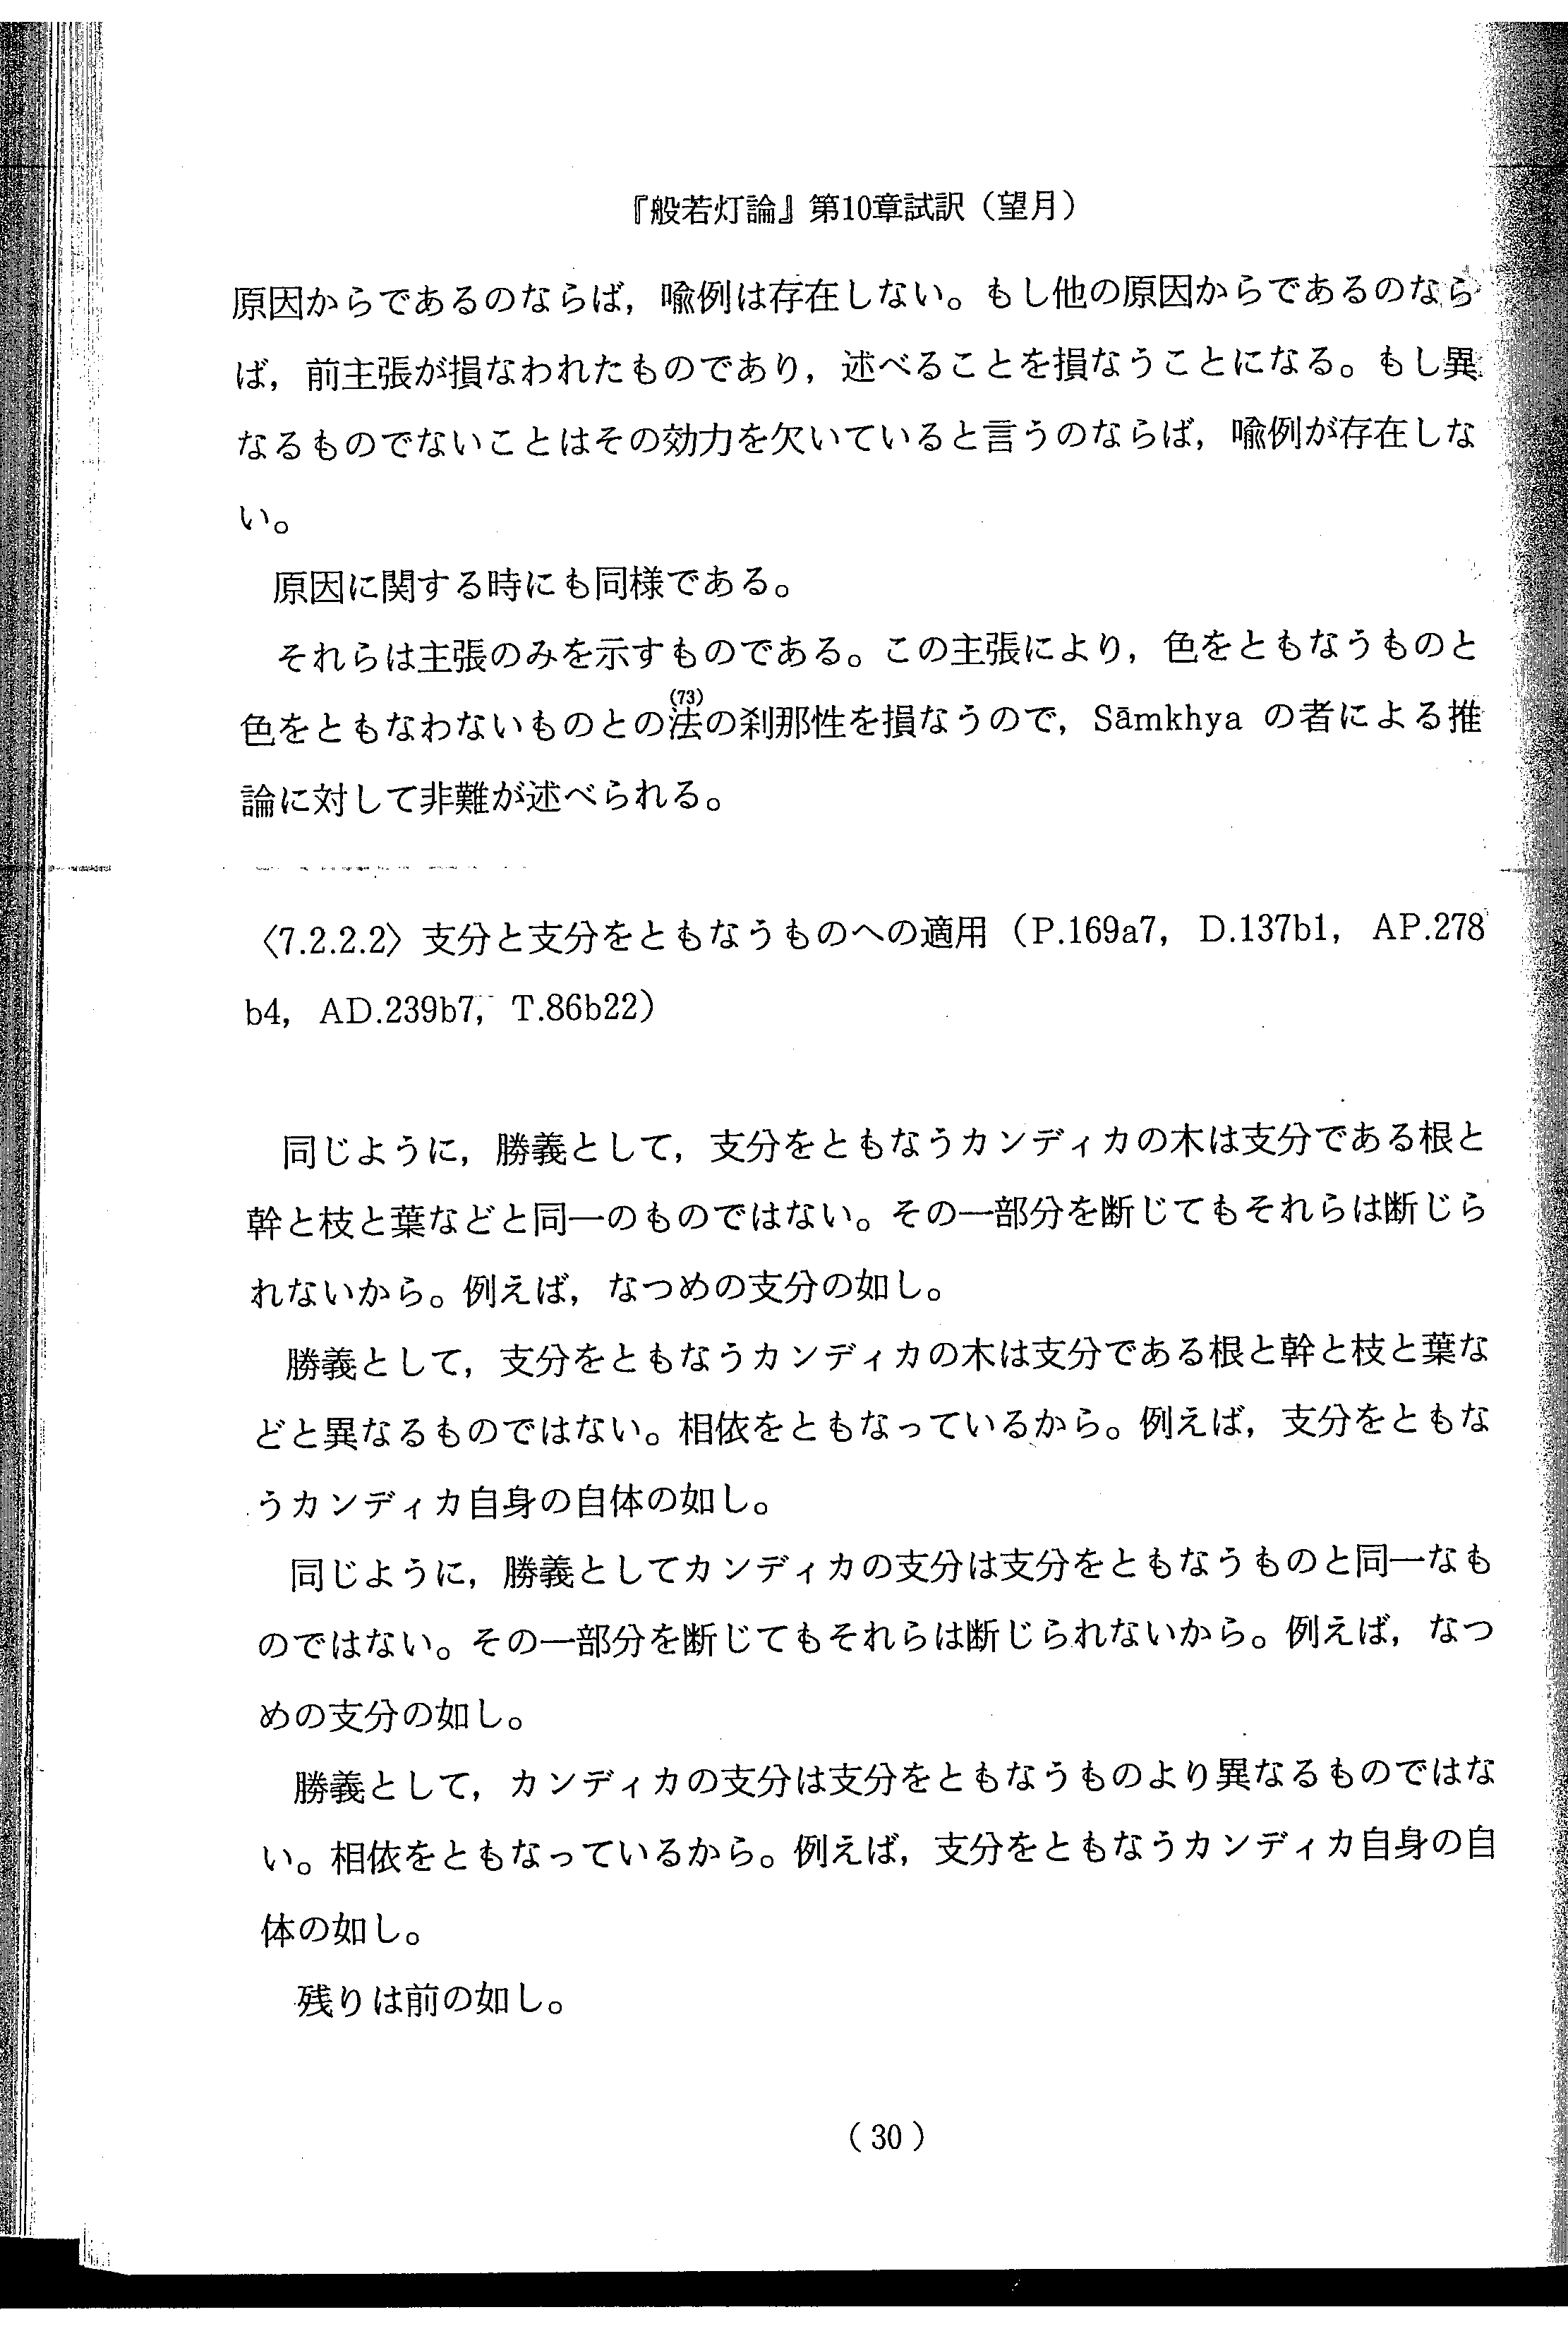 『般若灯論』第10章試訳（望月）
原因からであるのならば，喩例は存在しない。もし他の原因からであるのなら
ば，前主張が損なわれたものであり，述べることを損なうことになる。もし異
なるものでないことはその効力を欠いていると言うのならば，喩例が存在しな
い。
原因に関する時にも同様である。
それらは主張のみを示すものである。この主張により，色をともなうものと
色をともなわないものとの(73)法の刹那性を損なうので，Sāmkhya の者による推
論に対して非難が述べられる。
〈7.2.2.2〉支分と支分をともなうものへの適用（P.169a7, D.137b1, AP.278
b4, AD.239b7, T.86b22）
同じように，勝義として，支分をともなうカンディカの木は支分である根と
幹と枝と葉などと同一のものではない。その一部分を断じてもそれらは断じら
れないから。例えば，なつめの支分の如し。
勝義として，支分をともなうカンディカの木は支分である根と幹と枝と葉な
どと異なるものではない。相依をともなっているから。例えば，支分をともな
うカンディカ自身の自体の如し。
同じように，勝義としてカンディカの支分は支分をともなうものと同一なも
のではない。その一部分を断じてもそれらは断じられないから。例えば，なつ
めの支分の如し。
勝義として，カンディカの支分は支分をともなうものより異なるものではな
い。相依をともなっているから。例えば，支分をともなうカンディカ自身の自
体の如し。
残りは前の如し。
（30）